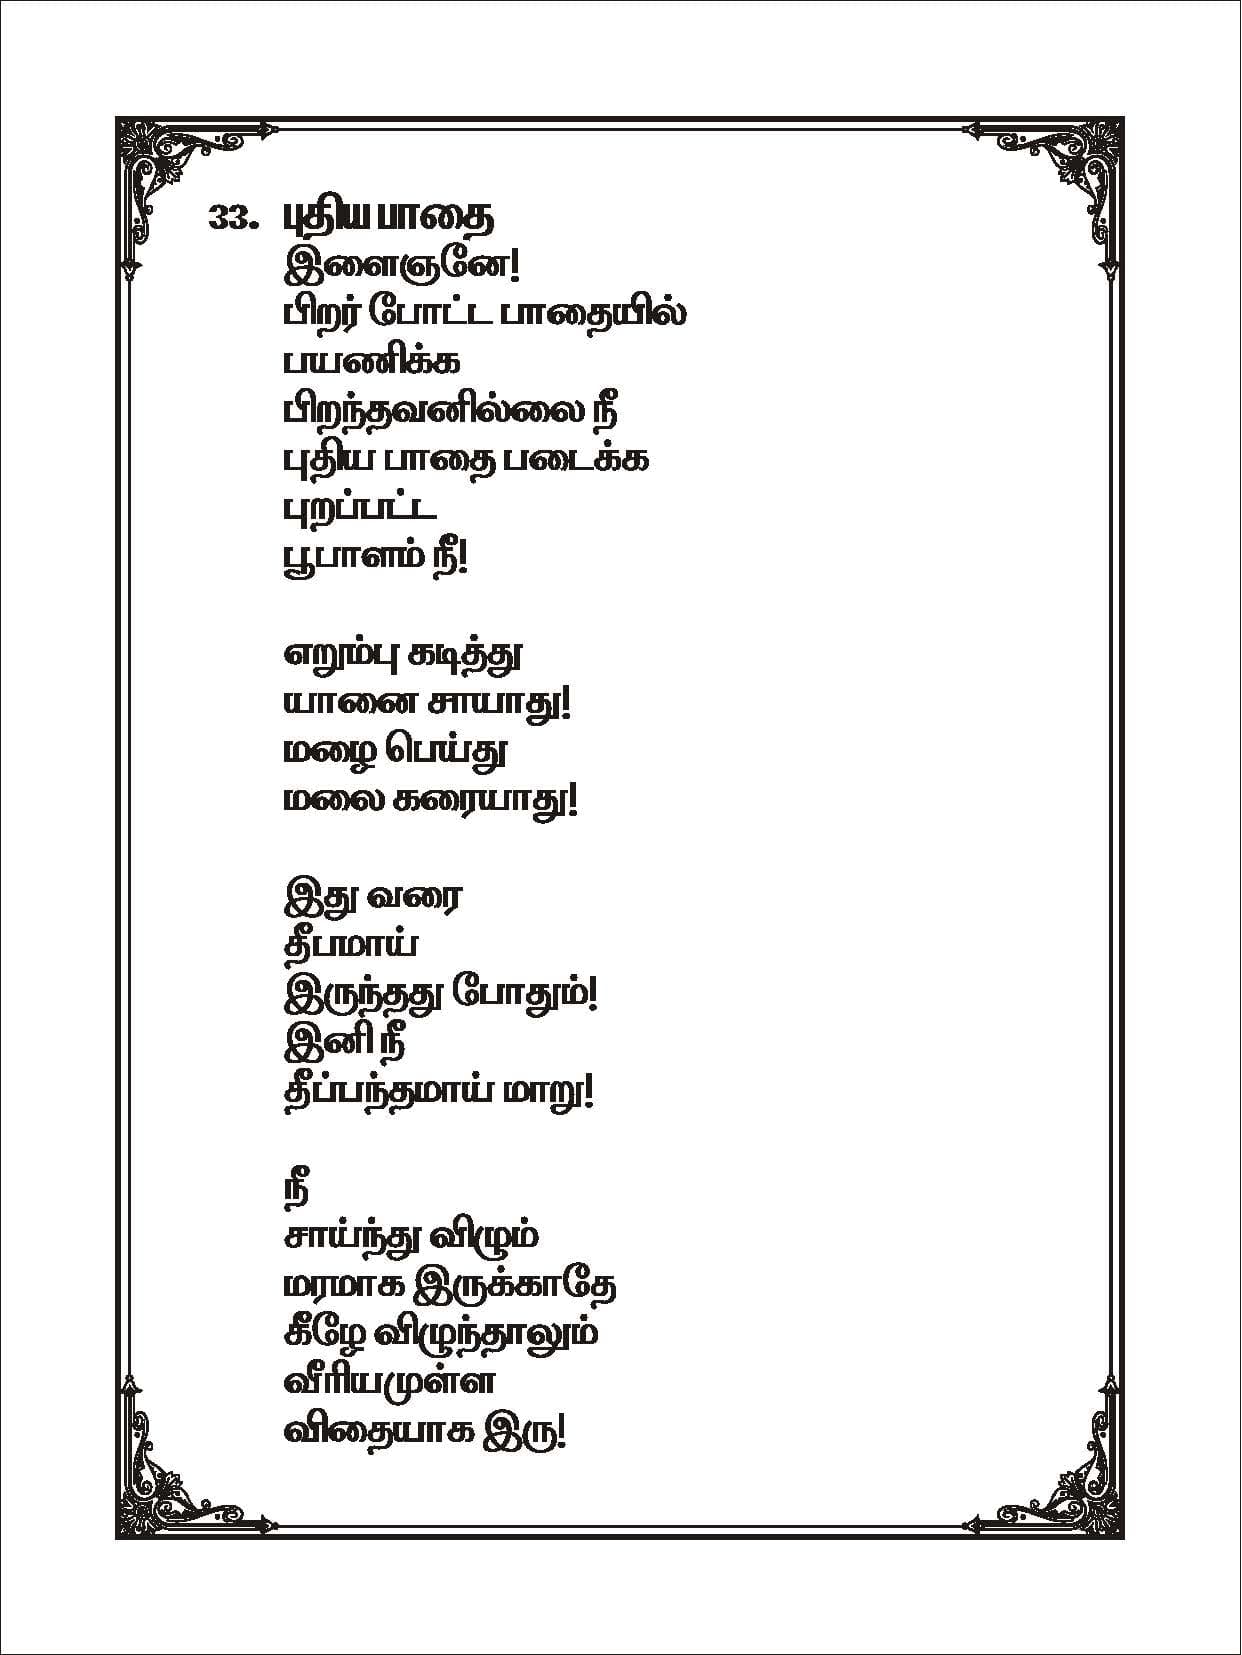 33. புதிய பாதை
இளைஞனே!
பிறர் போட்ட பாதையில்
பயணிக்க
பிறந்தவனில்லை நீ
புதிய பாதை படைக்க
புறப்பட்ட
பூபாளம் நீ!
எறும்பு கடித்து
யானை சாயாது!
மழை பெய்து
மலை கரையாது!
இது வரை
தீபமாய்
இருந்தது போதும்!
இனி நீ
தீப்பந்தமாய் மாறு!
நீ
சாய்ந்து விழும்
மரமாக இருக்காதே
கீழே விழுந்தாலும்
வீரியமுள்ள
விதையாக இரு!